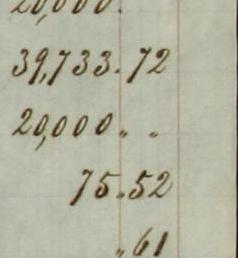 20,000.
39,733.72
20,000. .
75.52
.61